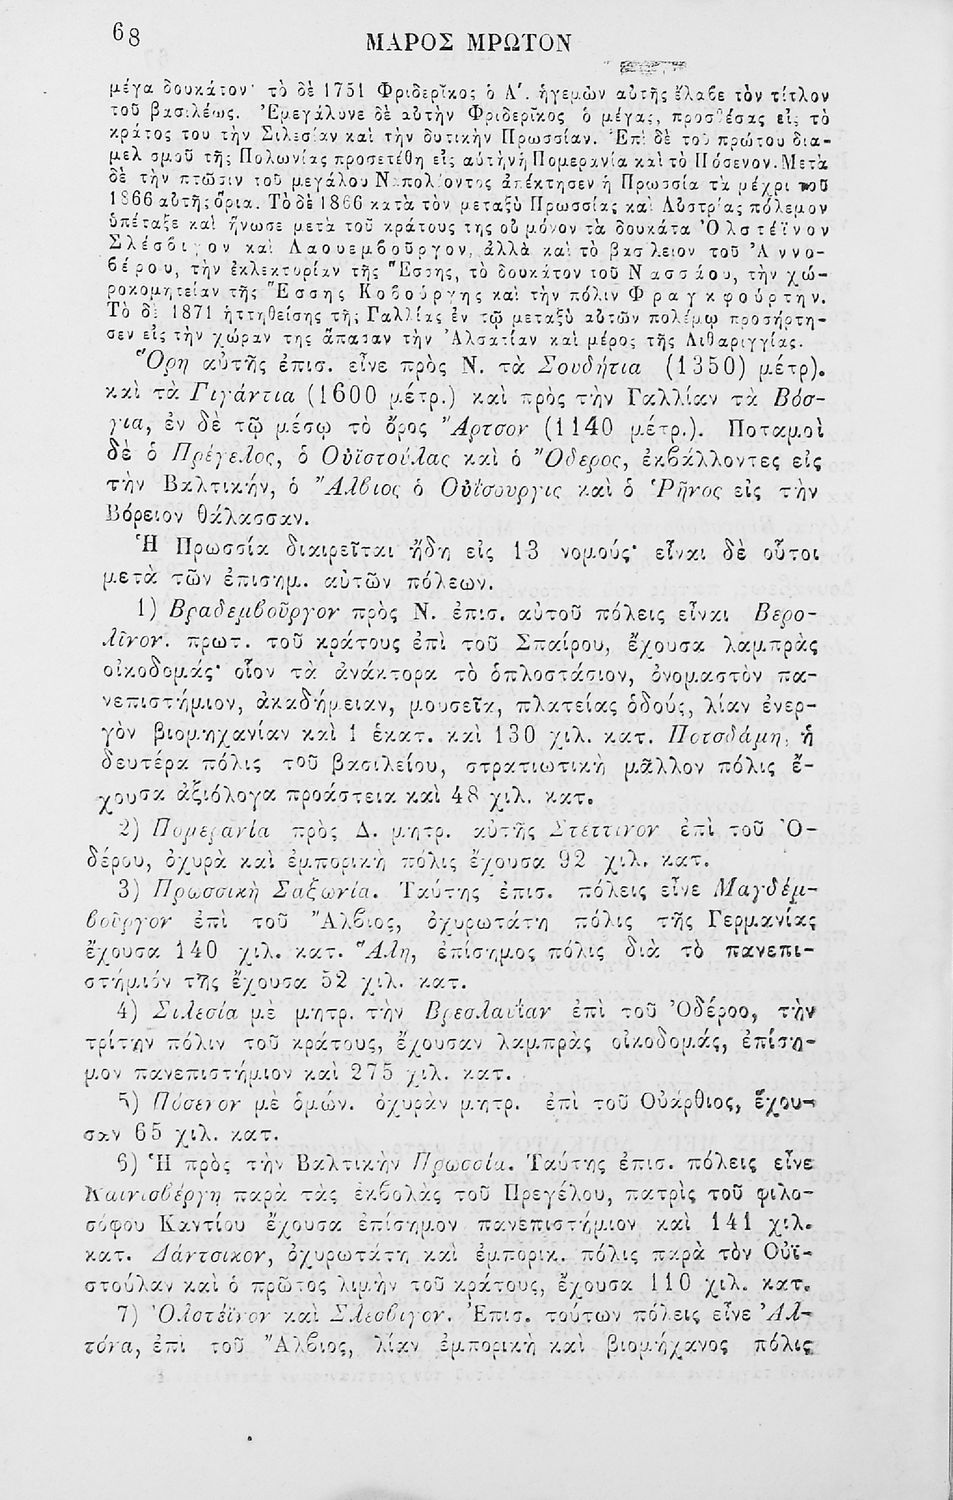 68
ΜΑΡΟΣ ΜΡΩΤΟΝ
μέγα δουκάτον· τὸ δὲ 1751 Φριδερῖκος ὁ Α΄. ἡγεμὼν αὐτῆς ἔλαβε τὸν τίτλον
τοῦ βασιλέως. Ἐμεγάλυνε δὲ αὐτὴν Φριδερῖκος ὁ μέγας, προσθέσας εἰς τὸ
κράτος του τὴν Σιλεσίαν καὶ τὴν δυτικὴν Πρωσσίαν. Ἐπὶ δὲ τοῦ πρώτου δια-
μελισμοῦ τῆς Πολωνίας προσετέθη εἰς αὐτὴν ἡ Πομερανία καὶ τὸ Πόσενον. Μετὰ
δὲ τὴν πτῶσιν τοῦ μεγάλου Ναπολέοντος ἀπέκτησεν ἡ Πρωσσία τὰ μέχρι τοῦ
1866 αὐτῆς ὅρια. Τὸ δὲ 1866 κατὰ τὸν μεταξὺ Πρωσσίας καὶ Αὐστρίας πόλεμον
ὑπέταξε καὶ ἥνωσε μετὰ τοῦ κράτους της οὐ μόνον τὰ δουκάτα Ὁλστέϊνον
Σλέσβιγον καὶ Λαουεμβοῦργον, ἀλλὰ καὶ τὸ βασίλειον τοῦ Ἀννο-
βέρου, τὴν ἐκλεκτορίαν τῆς Ἕσσης, τὸ δουκάτον τοῦ Νασσάου, τὴν χώ-
ροκομητείαν τῆς Ἕσσης Κοβούργης καὶ τὴν πόλιν Φραγκφούρτην.
Τὸ δὲ 1871 ἡττηθείσης τῆς Γαλλίας ἐν τῷ μεταξὺ αὐτῶν πολέμῳ προσήρτη-
σεν εἰς τὴν χώραν της ἅπασαν τὴν Ἀλσατίαν καὶ μέρος τῆς Λιθαριγγίας.
Ὄρη αὐτῆς ἐπισ. εἶνε πρὸς Ν. τὰ Σουδήτια (1350) μέτρ).
καὶ τὰ Γιγάντια (1600 μέτρ.) καὶ πρὸς τὴν Γαλλίαν τὰ Βόσ-
για, ἐν δὲ τῷ μέσῳ τὸ ὄρος Ἄρτσον (1140 μέτρ.). Ποταμοὶ
δὲ ὁ Πρέγελος, ὁ Οὐϊστούλας καὶ ὁ Ὄδερος, ἐκβάλλοντες εἰς
τὴν Βαλτικήν, ὁ Ἄλβιος ὁ Οὐΐσουργις καὶ ὁ Ῥῆνος εἰς τὴν
Βόρειον θάλασσαν.
Ἡ Πρωσσία διαιρεῖται ἤδη εἰς 13 νομούς· εἶναι δὲ οὗτοι
μετὰ τῶν ἐπισημ. αὐτῶν πόλεων.
1) Βραδεμβοῦργον πρὸς Ν. ἐπισ. αὐτοῦ πόλεις εἶναι Βερο-
λῖνον. πρωτ. τοῦ κράτους ἐπὶ τοῦ Σπαίρου, ἔχουσα λαμπρὰς
οἰκοδομάς· οἷον τὰ ἀνάκτορα τὸ ὁπλοστάσιον, ὀνομαστὸν πα-
νεπιστήμιον, ἀκαδήμειαν, μουσεῖα, πλατείας ὁδούς, λίαν ἐνερ-
γὸν βιομηχανίαν καὶ 1 ἑκατ. καὶ 130 χιλ. κατ. Ποτσδάμη, ἡ
δευτέρα πόλις τοῦ βασιλείου, στρατιωτικὴ μᾶλλον πόλις ἔ-
χουσα ἀξιόλογα προάστεια καὶ 48 χιλ. κατ.
2) Πομερανία πρὸς Δ. μητρ. αὐτῆς Στέττινον ἐπὶ τοῦ Ὀ-
δέρου, ὀχυρὰ καὶ ἐμπορικὴ πόλις ἔχουσα 92 χιλ. κατ.
3) Πρωσσικὴ Σαξωνία. Ταύτης ἐπισ. πόλεις εἶνε Μαγδέμ-
βουργον ἐπὶ τοῦ Ἄλβιος, ὀχυρωτάτη πόλις τῆς Γερμανίας
ἔχουσα 140 χιλ. κατ. Ἅλη, ἐπίσημος πόλις διὰ τὸ πανεπι-
στήμιόν της ἔχουσα 52 χιλ. κατ.
4) Σιλεσία μὲ μητρ. τὴν Βρεσλαυΐαν ἐπὶ τοῦ Ὀδέροο, τὴν
τρίτην πόλιν τοῦ κράτους, ἔχουσαν λαμπρὰς οἰκοδομάς, ἐπίση-
μον πανεπιστήμιον καὶ 275 χιλ. κατ.
5) Πόσενον μὲ ὁμών. ὀχυρὰν μητρ. ἐπὶ τοῦ Οὐάρθιος, ἔχου-
σαν 65 χιλ. κατ.
6) Ἡ πρὸς τὴν Βαλτικὴν Πρωσσία. Ταύτης ἐπισ. πόλεις εἶνε
Καινισβέργη παρὰ τὰς ἐκβολὰς τοῦ Πρεγέλου, πατρὶς τοῦ φιλο-
σόφου Καντίου ἔχουσα ἐπίσημον πανεπιστήμιον καὶ 141 χιλ.
κατ. Δάντσικον, ὀχυρωτάτη καὶ ἐμπορικ. πόλις παρὰ τὸν Οὐϊ-
στούλαν καὶ ὁ πρῶτος λιμὴν τοῦ κράτους, ἔχουσα 110 χιλ. κατ.
7) Ὁλστέϊνον καὶ Σλέσβιγον. Ἐπισ. τούτων πόλεις εἶνε Ἀλ-
τόνα, ἐπὶ τοῦ Ἄλβιος, λίαν ἐμπορικὴ καὶ βιομήχανος πόλις